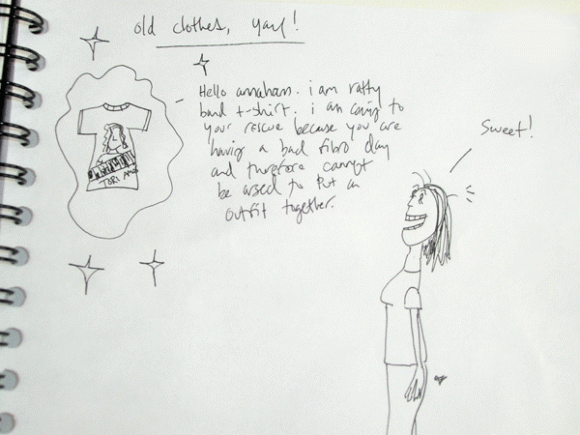 old clothes, yay!
Hello annaham. i am ratty
band t-shirt. i am coming to
your rescue because you are
having a bad fibro day
and therefore cannot
be arsed to put an
outfit together.
TORI AMOS
Sweet!